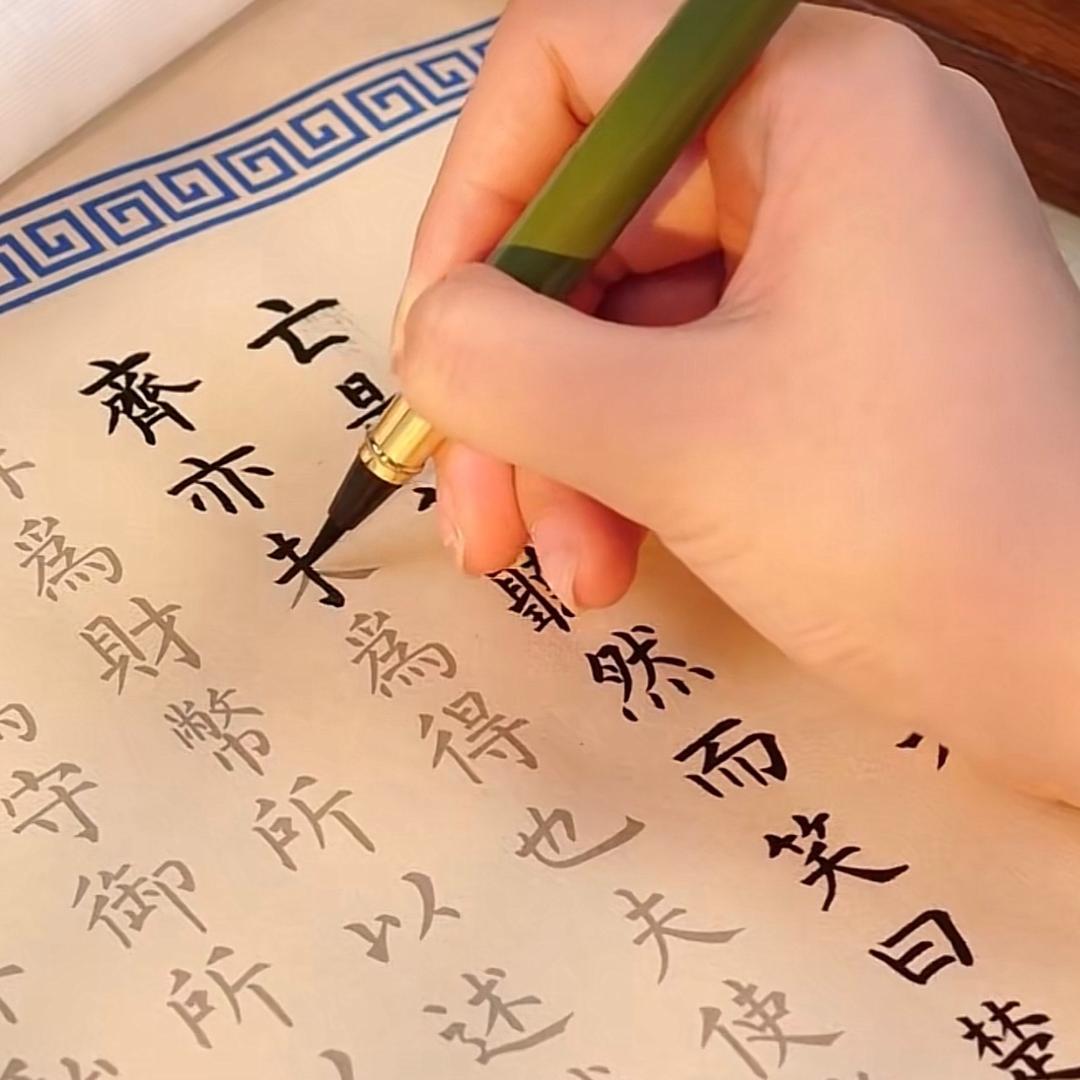 亡是聽然而笑曰楚
齊亦未爲得也夫使
爲財幣所以述
守御所